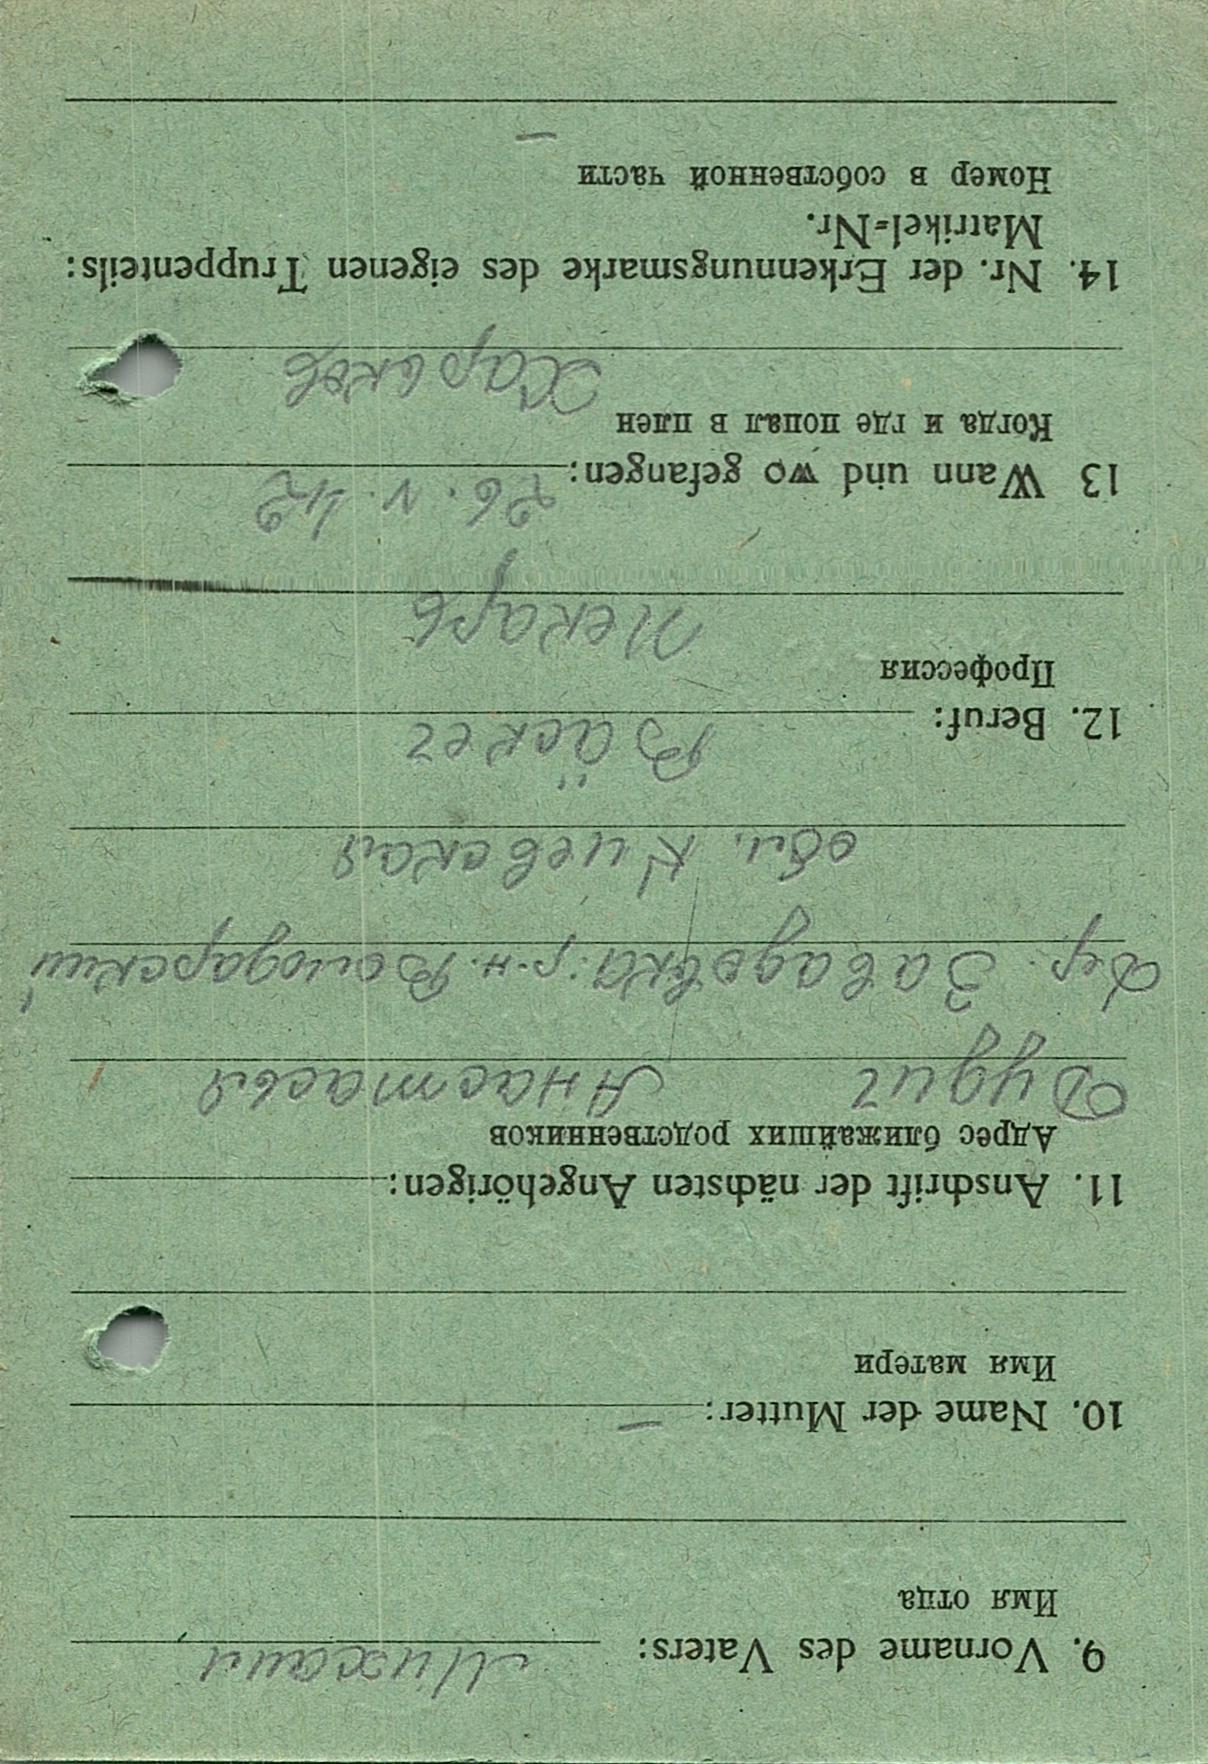 9. Vorname des Vaters: Михаил
Имя отца
10. Name der Mutter: —
Имя матери
11. Anschrift der nächsten Angehörigen:
Адрес ближайших родственников
Дудич Анастасья
Дер. Завадовка: р-н. Володарский
обл. Киевская
12. Beruf: Bäcker
Профессия
Пекарь
13 Wann und wo gefangen: 26. V. 42
Когда и где попал в плен
Харьков
14. Nr. der Erkennungsmarke des eigenen Truppenteils:
Matrikel=Nr.
Номер в собственной части
—